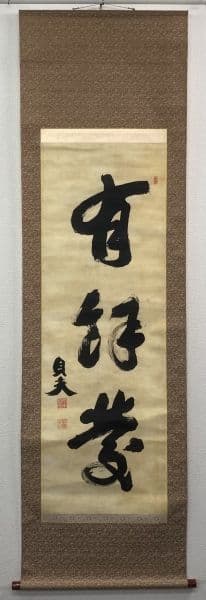 有餘慶
貞夫